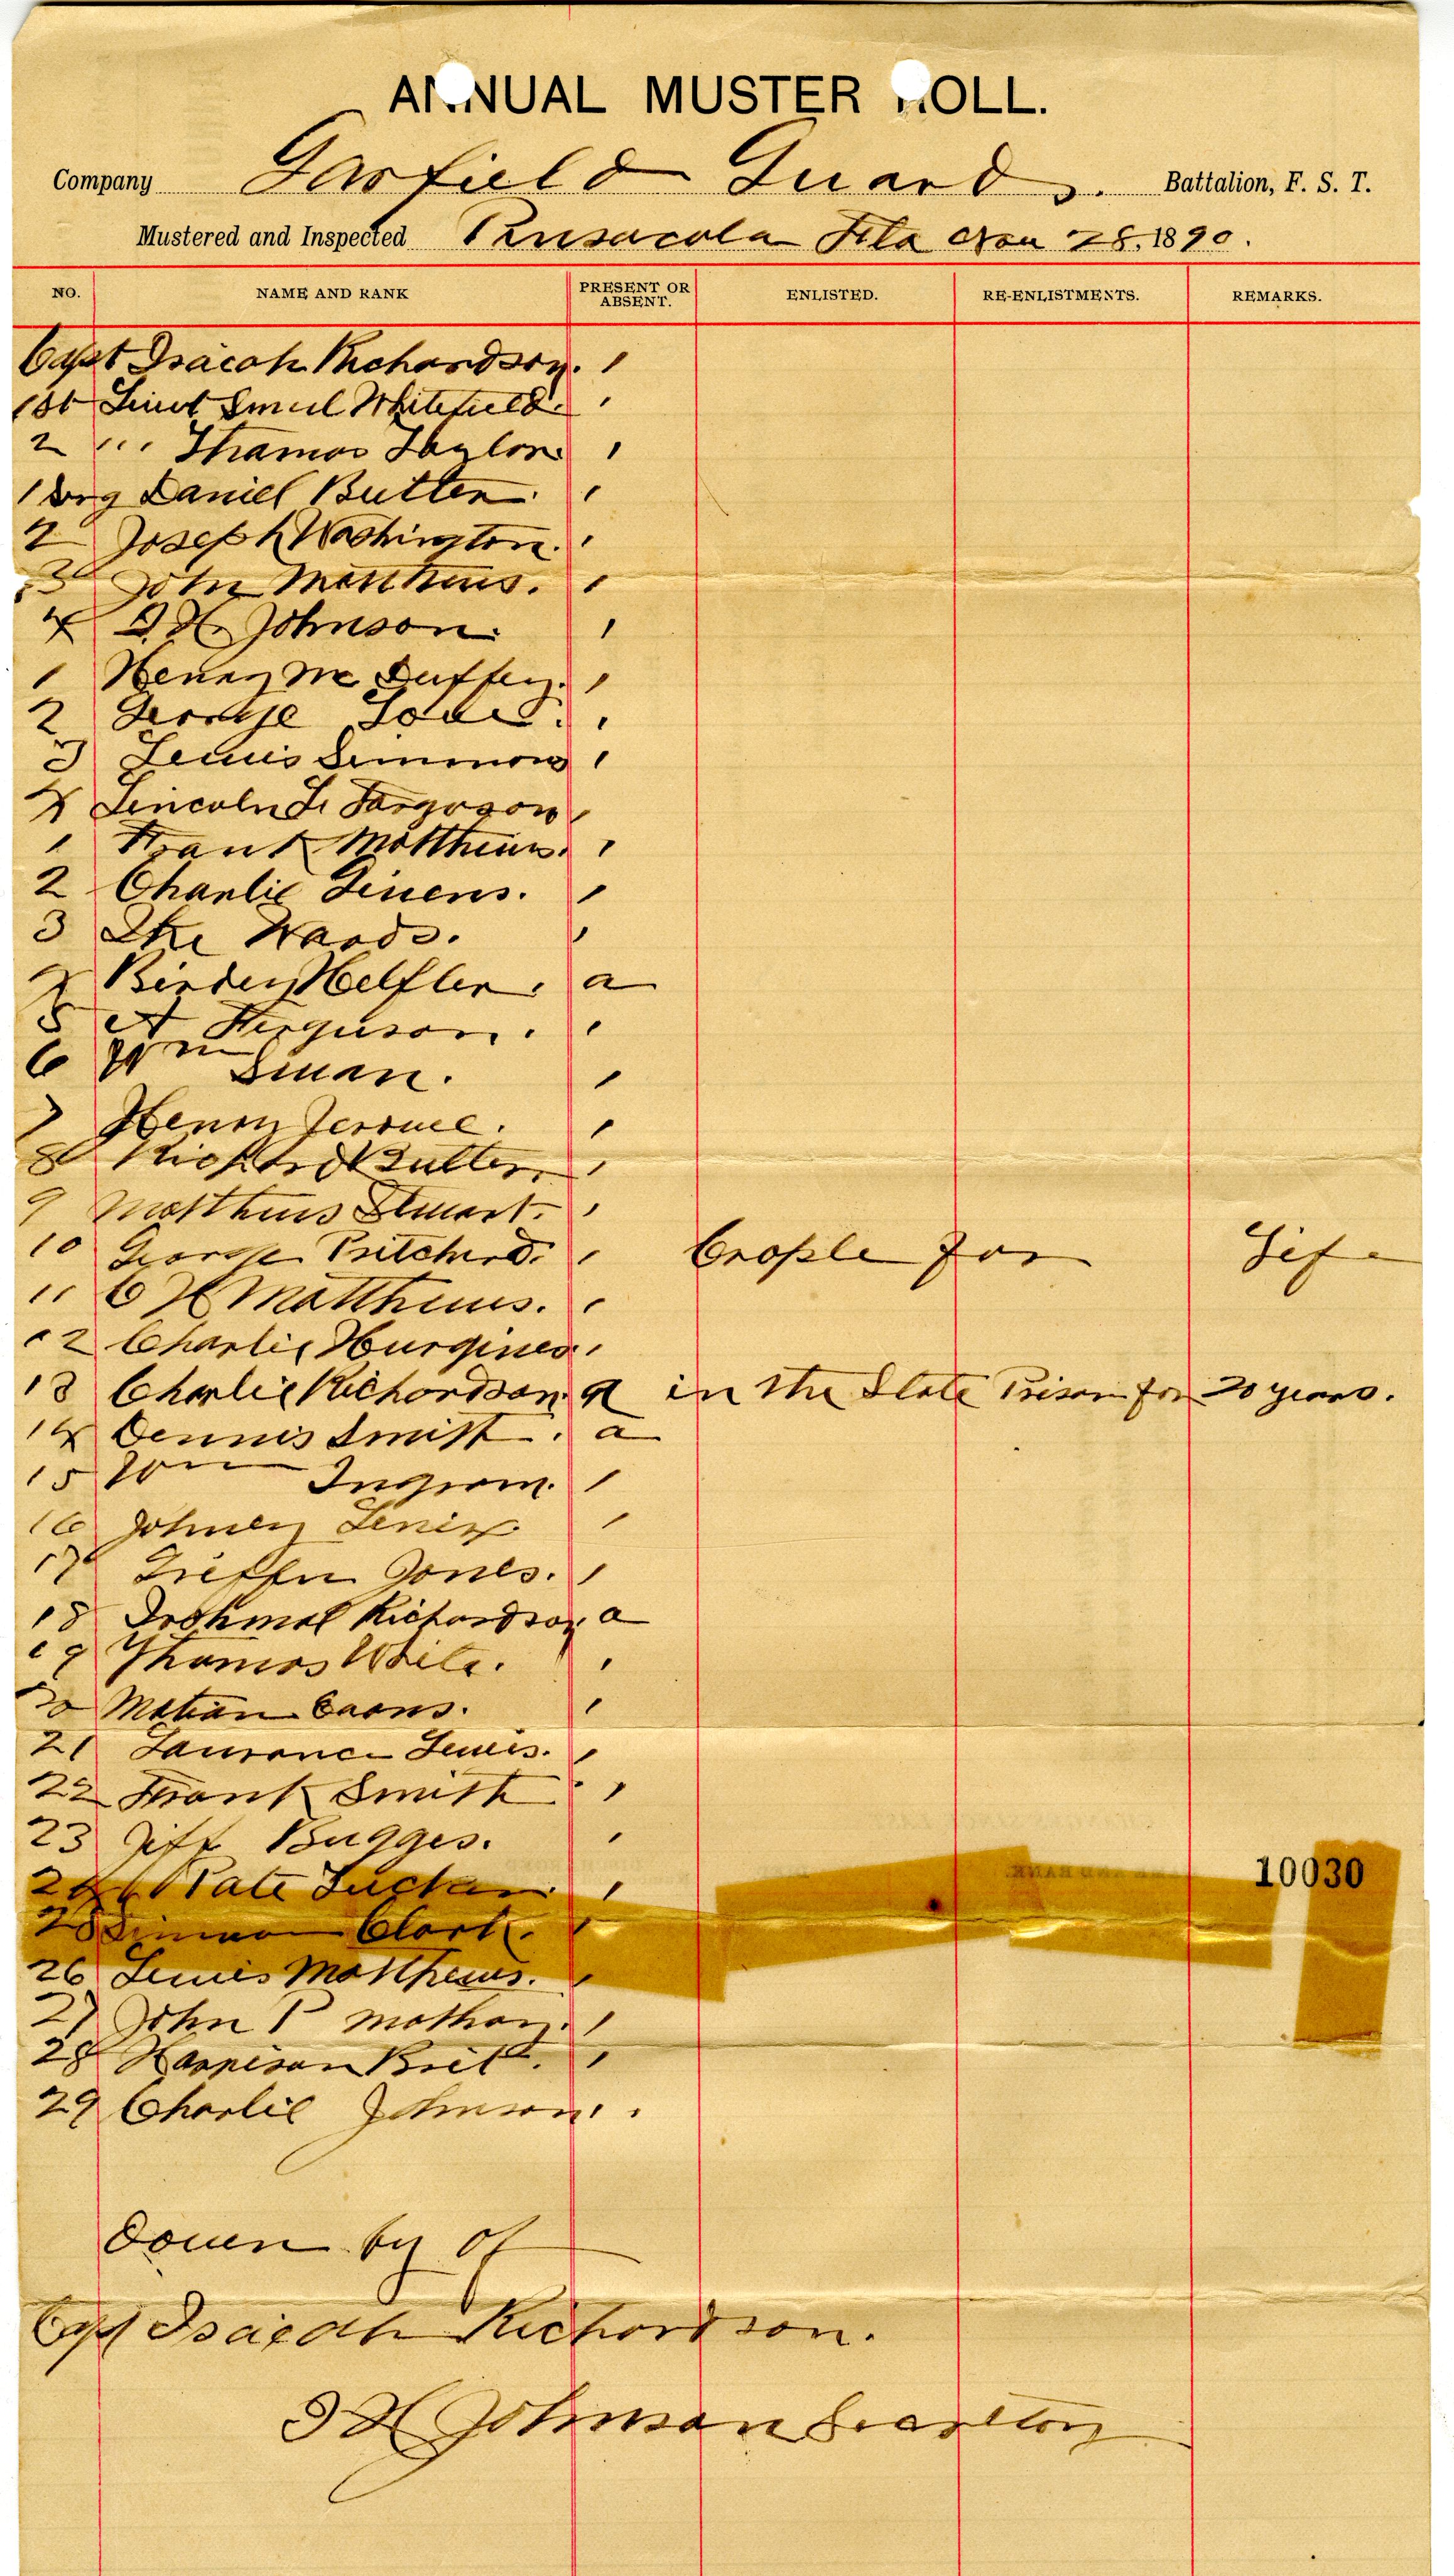 ANNUAL MUSTER ROLL.
Company Garfield Guards. Battalion, F. S. T.
Mustered and Inspected Pensacola Fla Nov 28, 1890.
NO. NAME AND RANK PRESENT OR ABSENT. ENLISTED. RE-ENLISTMENTS. REMARKS.
Capt Isacah Richardson. /
1st Lieut Smul Whitefield. /
2 " Thamos Taylor. /
1 Sirg Daniel Butler. /
2 Joseph Washington. /
3 John Matthews. /
4 I. H. Johnson. /
1 Henry Mc Duffey. /
2 George /
3 Lewis Simmons /
4 Lincoln L. /
1 Frank Matthews. /
2 Charlie /
3 Ike Wards. /
4 a
5 A Ferguson. /
6 Wm /
7 Henry /
8 Richard Butler. /
9 Matthews Stewart. /
10 George Pritchard. / Crople for Life
11 C H Matthews. /
12 Charlie /
13 Charlie Richardson a in the State Prison for 20 years.
14 Dennis Smith. a
15 Wm Ingram. /
16 Johney Lenix. /
17 Griffin Jones. /
18 Richardson. a
19 Thomas White. /
20 /
21 Laurance Lewis. /
22 Frank Smith /
23 Jeff Bugges. /
24 /
25 Simon Clark. /
26 Lewis Matthews. /
27 John P /
28 Harrison /
29 Charlie Johnson. /
10030
Down by of
Capt Isaicah Richardson.
I H Johnson Searltory